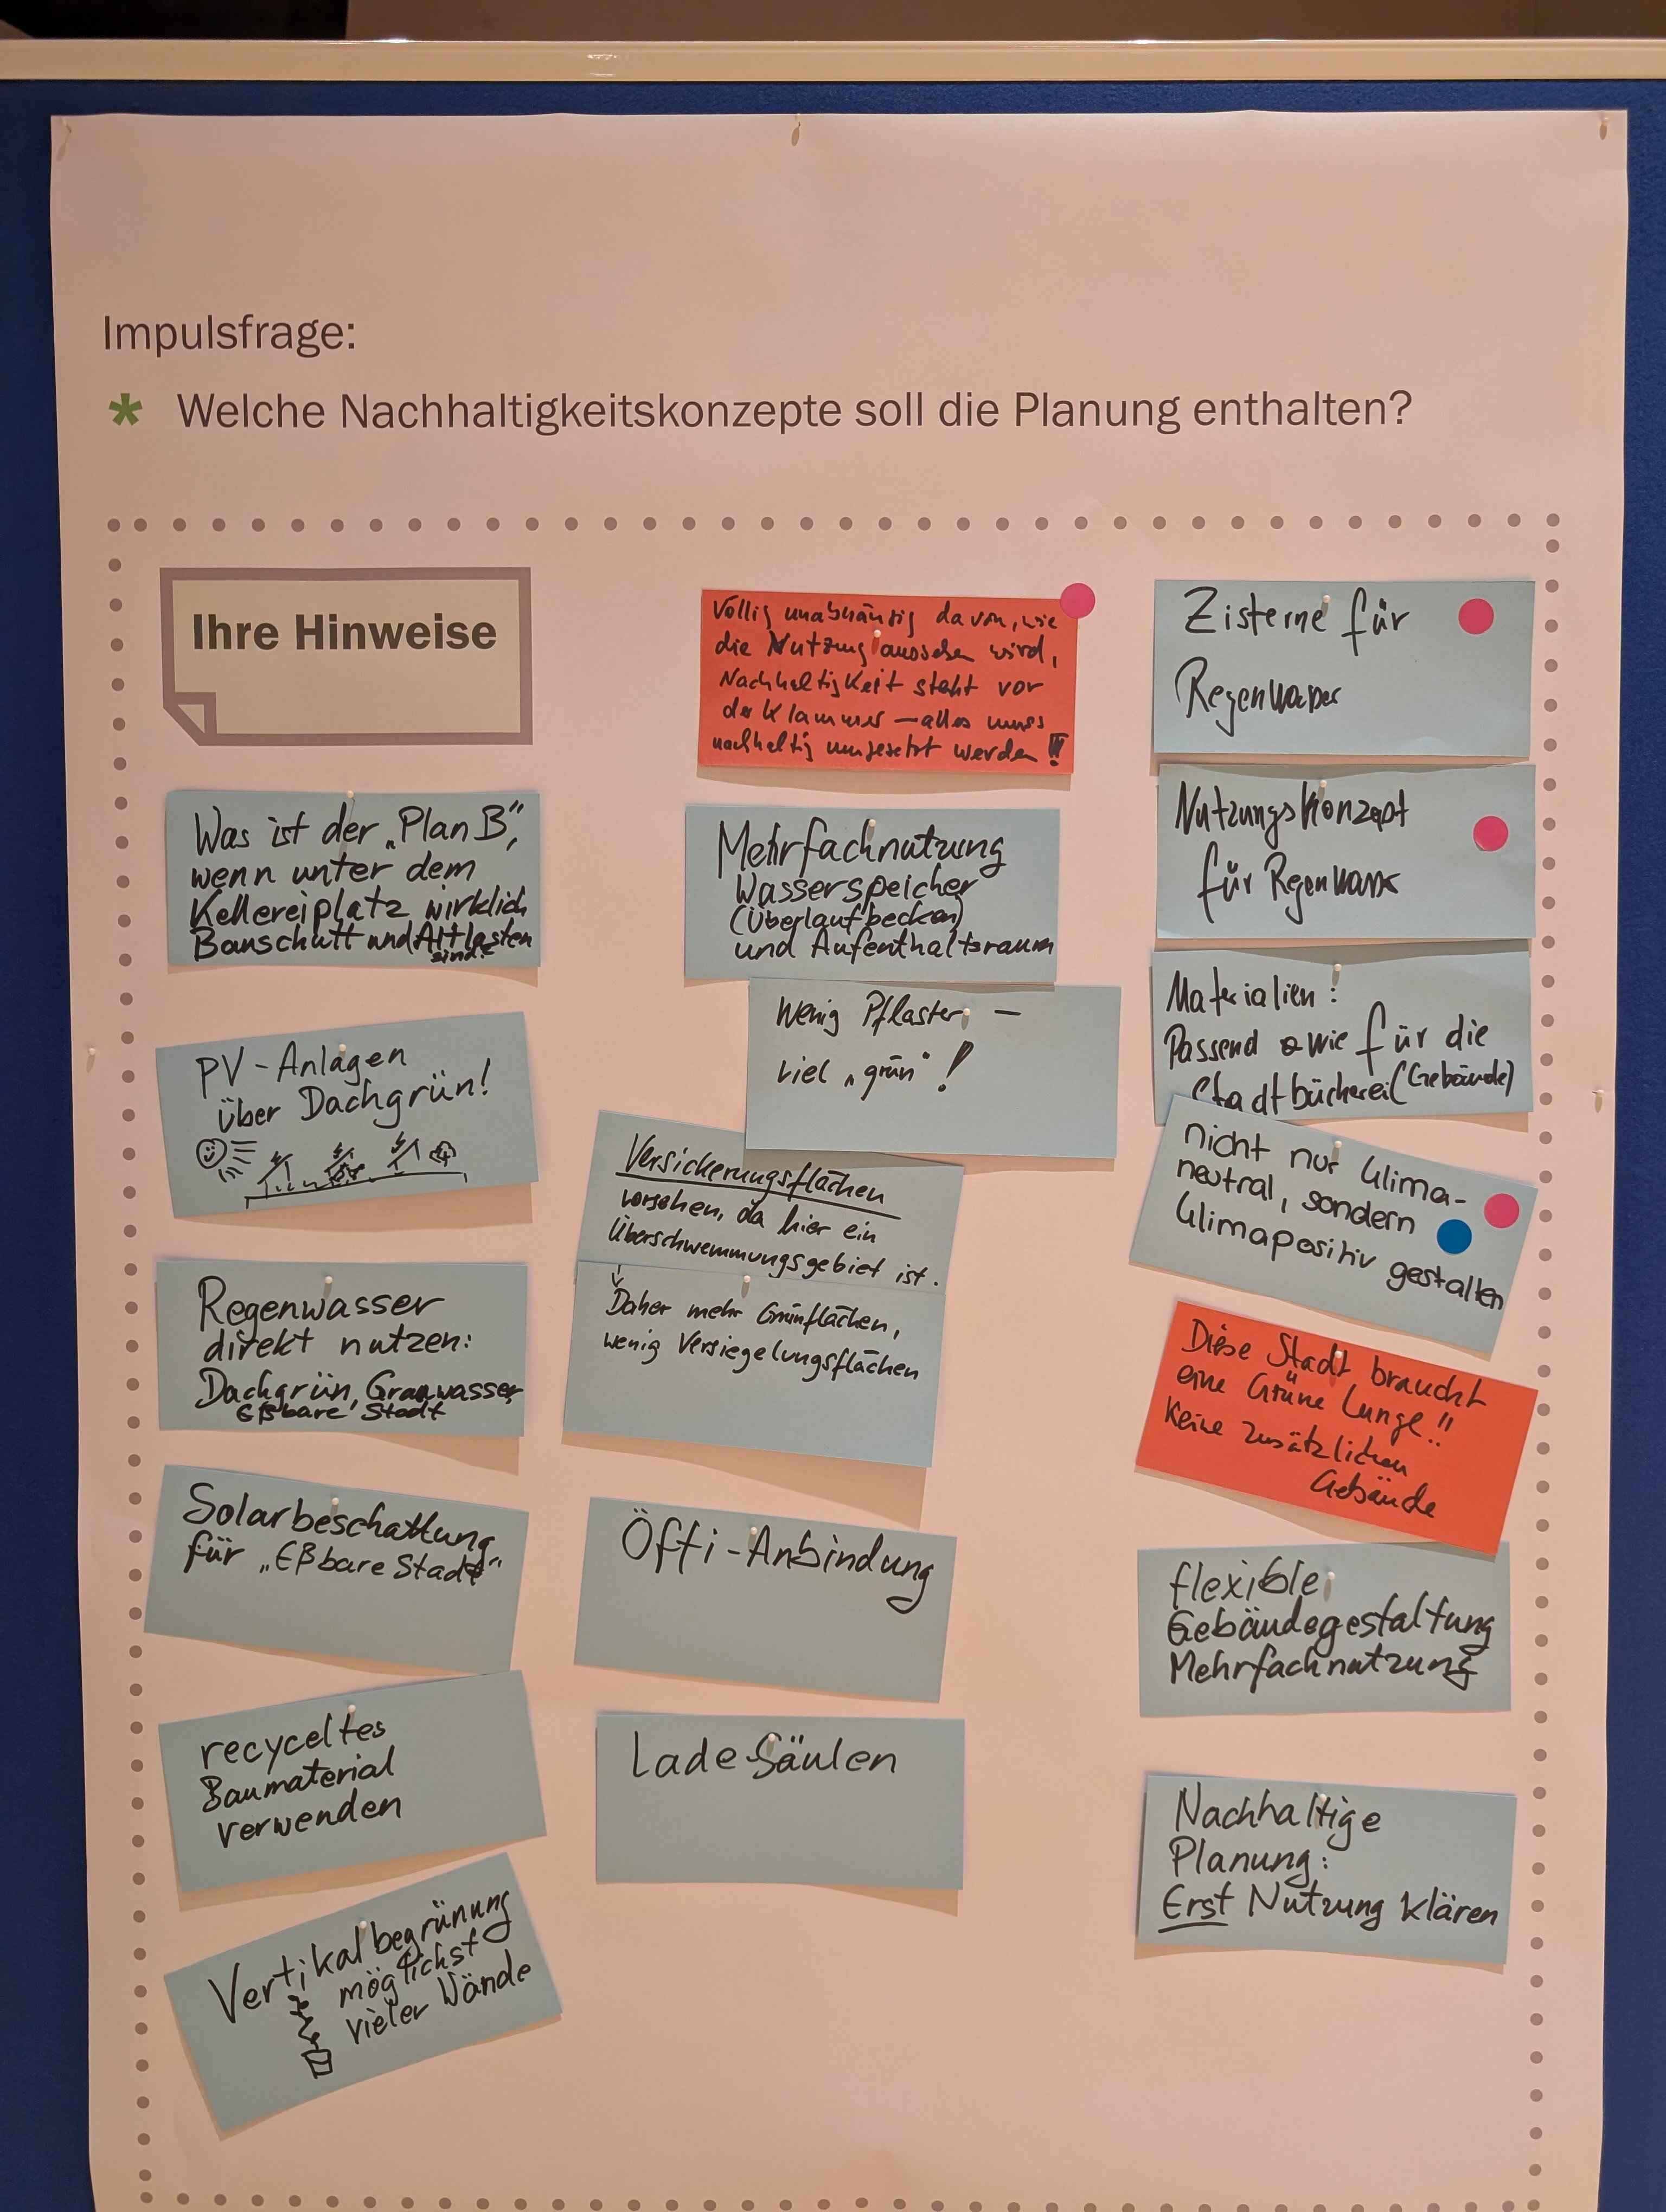 Impulsfrage:
* Welche Nachhaltigkeitskonzepte soll die Planung enthalten?
Ihre Hinweise
Was ist der „Plan B“,
wenn unter dem
Kellereiplatz wirklich
Bauschutt und Altlasten
sind?
PV-Anlagen
über Dachgrün!
Regenwasser
direkt nutzen:
Dachgrün, Grauwasser,
Eßbare Stadt
Solarbeschattung
für „Eßbare Stadt“
recyceltes
Baumaterial
verwenden
Vertikalbegrünung
möglichst
vieler Wände
Völlig unabhängig davon, wie
die Nutzung aussehen wird,
Nachhaltigkeit steht vor
der Klammer – alles muss
nachhaltig umgesetzt werden!!!
Mehrfachnutzung
Wasserspeicher
(Überlaufbecken)
und Aufenthaltsraum
Wenig Pflaster –
viel „grün“!
Versickerungsflächen
vorsehen, da hier ein
Überschwemmungsgebiet ist.
↓
Daher mehr Grünflächen,
wenig Versiegelungsflächen
Öffi-Anbindung
Lade-Säulen
Zisterne für
Regenwasser
Nutzungskonzept
für Regenwasser
Materialien:
Passend wie für die
Stadtbücherei (Gebäude)
nicht nur klima-
neutral, sondern
klimapositiv gestalten
Diese Stadt braucht
eine Grüne Lunge!!
Keine zusätzlichen
Gebäude
flexible
Gebäudegestaltung
Mehrfachnutzung
Nachhaltige
Planung:
Erst Nutzung klären